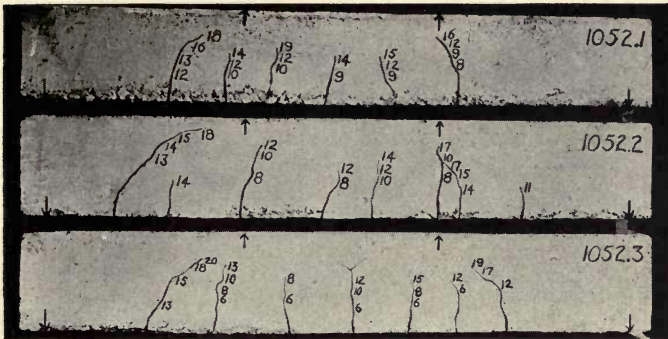 1052.1
18
16
13
12
14
12
10
19
12
10
14
9
15
12
9
16
12
9
8
1052.2
18
15
14
13
14
12
10
8
12
8
14
12
10
17
10
8
17
15
14
11
1052.3
18 20
15
13
13
10
8
6
8
6
12
10
6
15
8
6
12
6
19
17
12